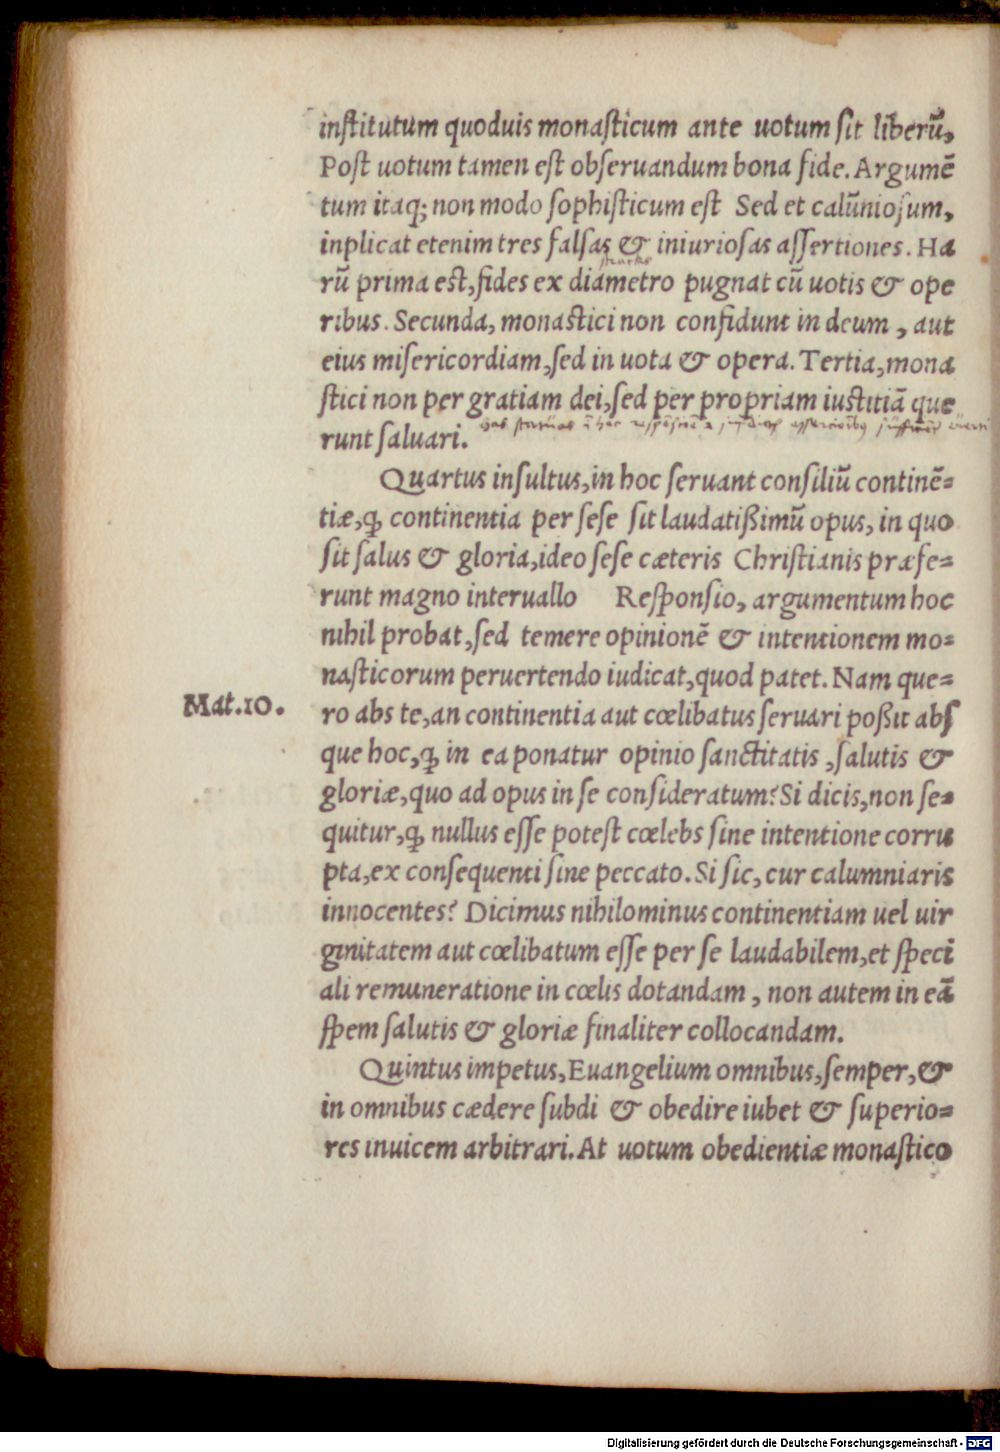 inſtitutum quoduis monaſticum ante uotum ſit liberū,
Poſt uotum tamen eſt obſeruandum bona fide. Argumē
tum itaq; non modo ſophiſticum eſt Sed et calūnioſum,
inplicat etenim tres falſas & iniurioſas aſſertiones. Ha
rū prima eſt, fides ex diámetro pugnat cū uotis & ope
ribus. Secunda, monaſtici non confidunt in deum, aut
eius miſericordiam, ſed in uota & opera. Tertia, mona
ſtici non per gratiam dei, ſed per propriam iuſtitiā que
runt ſaluari.
Quartus inſultus, in hoc ſeruant conſiliū continē=
tiæ, ꝙ continentia per ſeſe ſit laudatißimū opus, in quo
ſit ſalus & gloria, ideo ſeſe cæteris Chriſtianis præfe=
runt magno interuallo Reſponſio, argumentum hoc
nihil probat, ſed temere opinionē & intentionem mo=
naſticorum peruertendo iudicat, quod patet. Nam que=
Mat.10.
ro abs te, an continentia aut cœlibatus ſeruari poßit abſ
que hoc, ꝙ in ea ponatur opinio ſanctitatis, ſalutis &
gloriæ, quo ad opus in ſe conſideratum? Si dicis, non ſe=
quitur, ꝙ nullus eſſe poteſt cœlebs ſine intentione corru
pta, ex conſequenti ſine peccato. Si ſic, cur calumniaris
innocentes? Dicimus nihilominus continentiam uel uir
ginitatem aut cœlibatum eſſe per ſe laudabilem, et ſpeci
ali remuneratione in cœlis dotandam, non autem in eā
ſpem ſalutis & gloriæ finaliter collocandam.
Quintus impetus, Euangelium omnibus, ſemper, &
in omnibus cædere ſubdi & obedire iubet & ſuperio=
res inuicem arbitrari. At uotum obedientiæ monaſtico
Digitalisierung gefördert durch die Deutsche Forschungsgemeinschaft - DFG